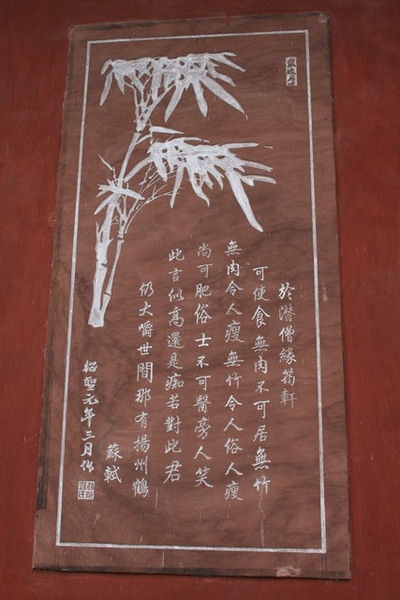 東坡居士
於潜僧緣筠軒
可使食無肉不可居無竹
無肉令人瘦無竹令人俗人瘦
尚可肥俗士不可醫旁人笑
此言似高還是痴若對此君
仍大嚼世間那有揚州鶴
蘇軾
紹聖元年三月作